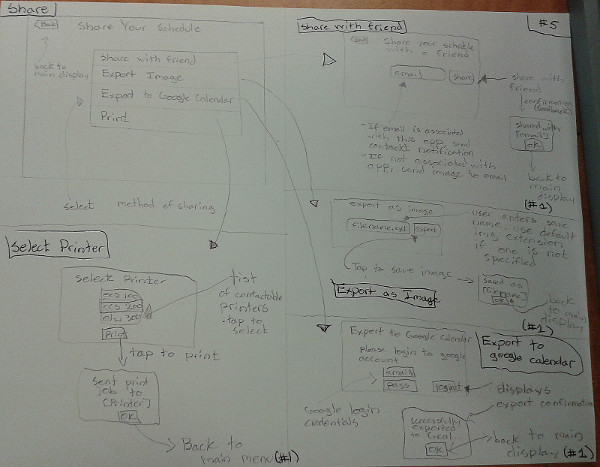 Share
#5
Back
Share Your Schedule
back to
main display
Share with friend
Export Image
Export to Google Calendar
Print
select method of sharing
Share with friend
Back
Share your schedule
with a friend
email
share
share with
friend
confirmation
shared with
[email]
OK
back to
main
display
(#1)
- If email is associated
with this app send
contact notification
- If not associated with
app, send image to email
export as image
filename.ext
export
user enters save
name, use default
img extension
if one is not
specified
Tap to save image
saved as
back to main
display
(#1)
Export as Image
Select Printer
Select Printer
ecs 200
Print
list
of contactable
printers
tap to
select
tap to print
sent print
job to
[Printer]
OK
Back to
main menu (#1)
Export to
google calendar
Export to Google Calendar
please login to google
account
email
pass
Google login
credentials
displays
export confirmation
successfully
exported
to Gcal
OK
back to main
display (#1)